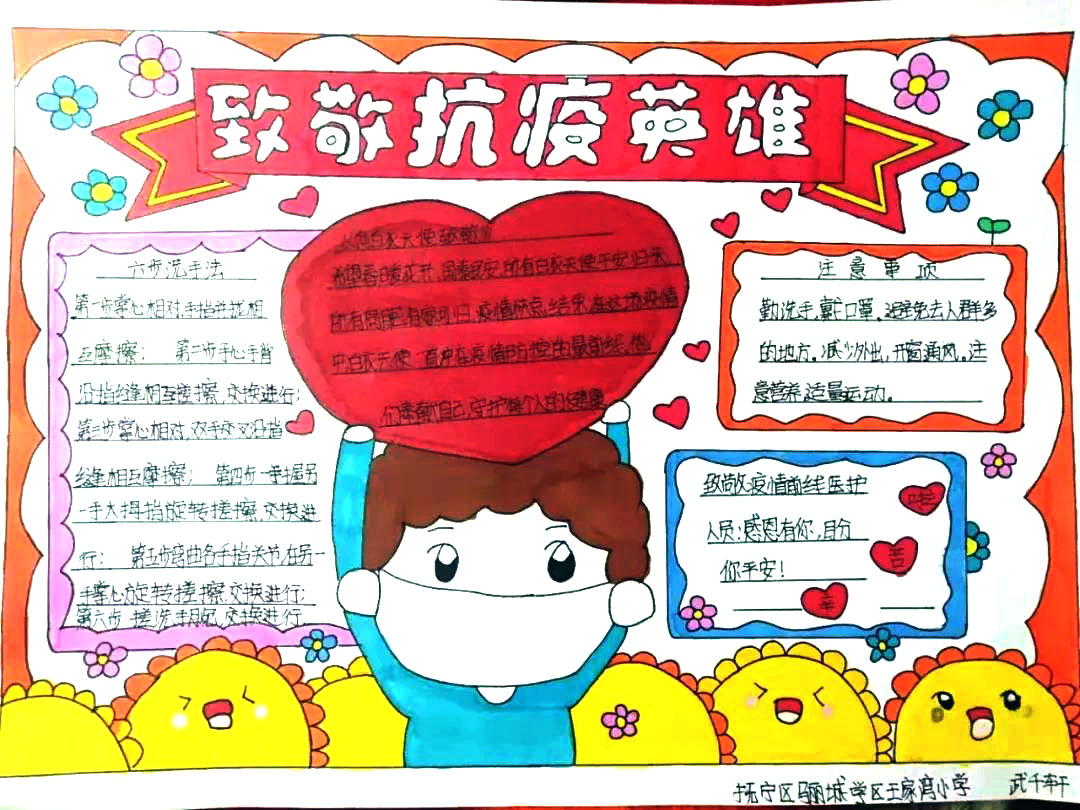 致敬抗疫英雄
六步洗手法
第一步掌心相对,手指并拢相
互摩擦; 第二步手心手背
沿指缝相互搓擦,交换进行;
第三步掌心相对,双手交叉沿指
缝相互摩擦; 第四步一手握另
一手大拇指旋转搓擦,交换进
行; 第五步弯曲各手指关节,在另一
手掌心旋转搓擦,交换进行;
第六步 搓洗手腕,交换进行
白衣天使
希望春暖花开,国泰民安,所有白衣天使平安归来
所有 疫情快点结束,在这场疫情
中白衣天使一直冲在疫情防控的最前线,他
们奉献自己,守护每个人的 健康
注意事项
勤洗手,戴口罩,避免去人群多
的地方。减少外出,开窗通风。注
意营养,适量运动。
致敬疫情前线医护
人员:感恩有你,
你平安!
啦
苦
辛
抚宁区骊城学区王家湾小学 武千轩